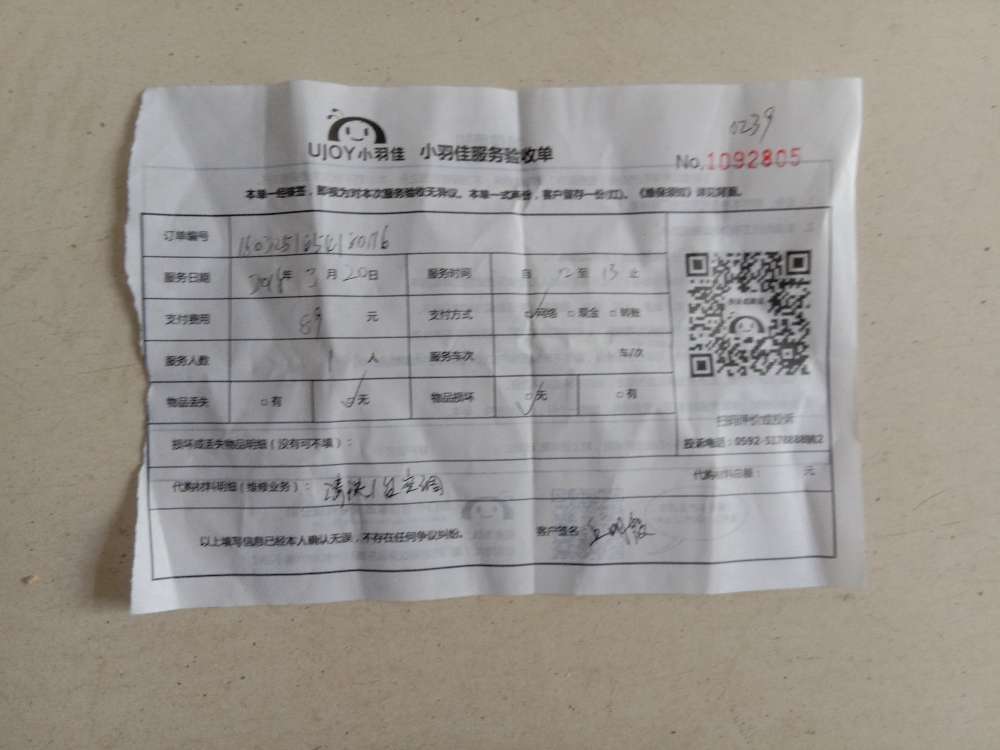 0239
UJOY小羽佳 小羽佳服务验收单
No.1092805
本单一经签签，即视为对本次服务验收无异议。本单一式两份，客户留存一份(红)。《维保须知》详见背面。
订单编号
服务日期 2018年 3月20日 服务时间 自 12 至 13 止
支付费用 89 元 支付方式 □网络 □现金 □转账
服务人数 1 人 服务车次 车/次
物品丢失 □有 □无 物品损坏 □无 □有
扫码评价或投诉
损坏或丢失物品明细（没有可不填）：
投诉电话：
代购材料明细（维修业务）： 清洗1台空调 代购材料总额： 元
以上填写信息已经本人确认无误，不存在任何争议纠纷。 客户签名：